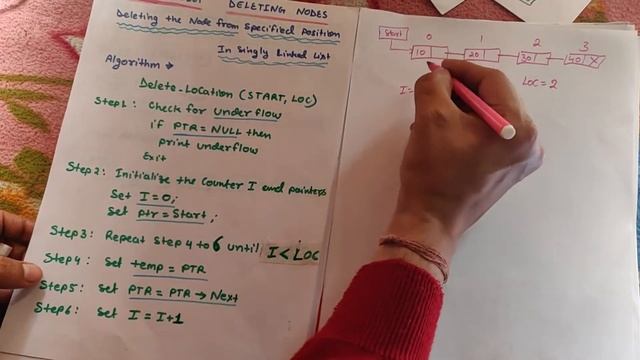 DELETING NODES
Deleting the Node from Specified Position
In Singly Linked List
Algorithm →
Delete-Location (START, LOC)
Step1: Check for underflow
if PTR = NULL then
print underflow
Exit
Step 2: Initialise the Counter I and pointers
Set I=0;
Set ptr = Start;
Step3: Repeat Step 4 to 6 until I < LOC
Step4: Set temp = PTR
Step5: Set PTR = PTR → Next
Step6: Set I = I+1
Start 0 1 2 3
10 20 30 40 X
I=
LOC = 2